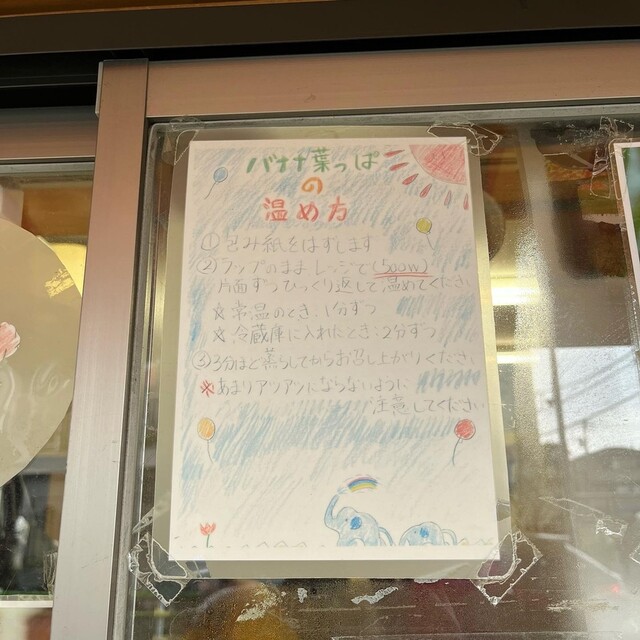 バナナ葉っぱ
の
温め方
①包み紙をはずします
②ラップのままレンジで(500W)
片面ずつひっくり返して温めてください
☆常温のとき:1分ずつ
☆冷蔵庫に入れたとき:2分ずつ
③3分ほど蒸らしてからお召し上がりください
※あまりアツアツにならないように
注意してください